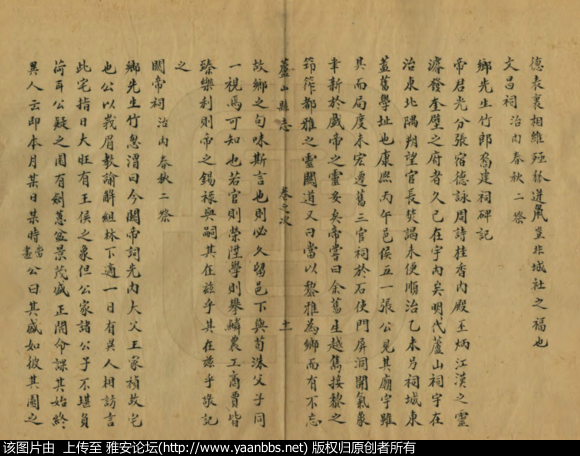 德表裏相維殛𥙿道氣豈非城社之福也
文昌祠 治內春秋二祭
鄉先生竹郎裔建祠碑記
帝君光分張宿德詠周詩桂香內殿玉炳江漢之靈
濬發奎壁之府者久已在宇內矣明代蘆山祠宇在
治東北隅朔望官長焚謁未便順治乙未乃祠城東
蓋舊學址也康熙丙午邑侯五一張公見其廟宇雖
具而局度未宏遵舊三官祠於石使門屏洞開氣象
聿新於戲帝之靈妥矣帝嘗曰余舊生越雋接黎之
筰都雅之靈關道又曰嘗以黎雅為鄉而有不忘
蘆山縣志 卷之次 十一
故鄉之句味斯言也則必久留邑下與荀洙父子同
一視焉可知也若官則榮陞學則舉鱗農工商賈皆
臻樂利則帝之錫楳與嗣其在茲乎其在茲乎敬記
之
關帝祠 治內春秋二祭
鄉先生竹忽渭曰今關帝祠先內大父王家楨故宅
也公以莪眉教諭解組林下適一日有異人相訪言
此宅指日大旺有王侯之象但公家諸公子不堪負
荷耳公疑之園有劍蕙盆景茂盛正開命謀其始終
異人云即本月某日某時當盡公曰其盛如彼其園之
该图片由 上传至 雅安论坛(http://www.yaanbbs.net) 版权归原创者所有